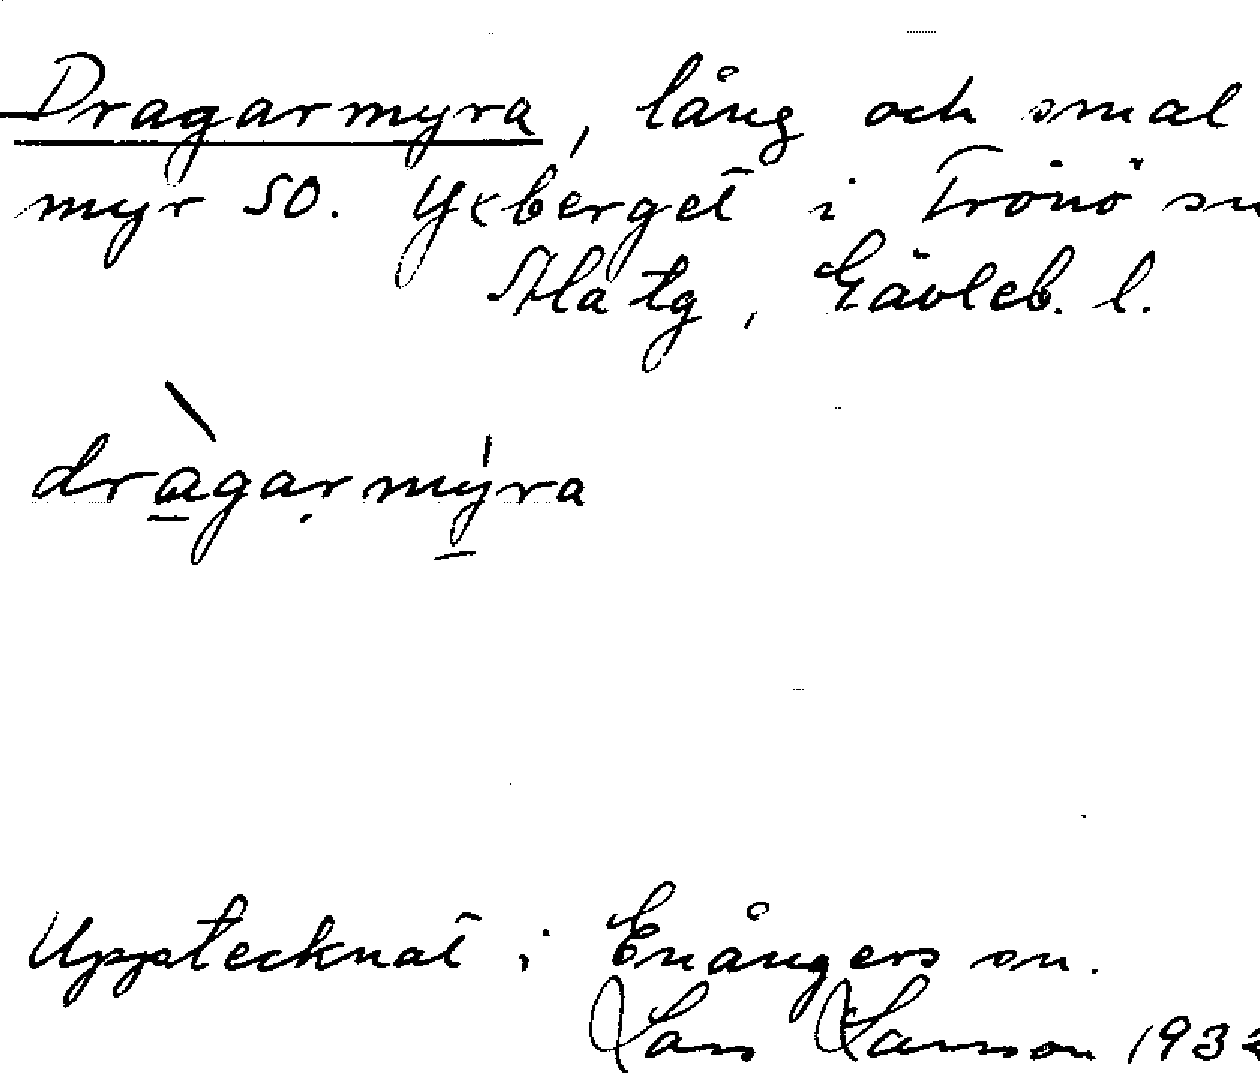 Dragarmyra, lång och smal
myr SO. Yxberget i Trönö sn
Ala tg, Gävleb. l.
dràgarmýra
Upptecknat i Enångers sn.
Lars Larsson 193